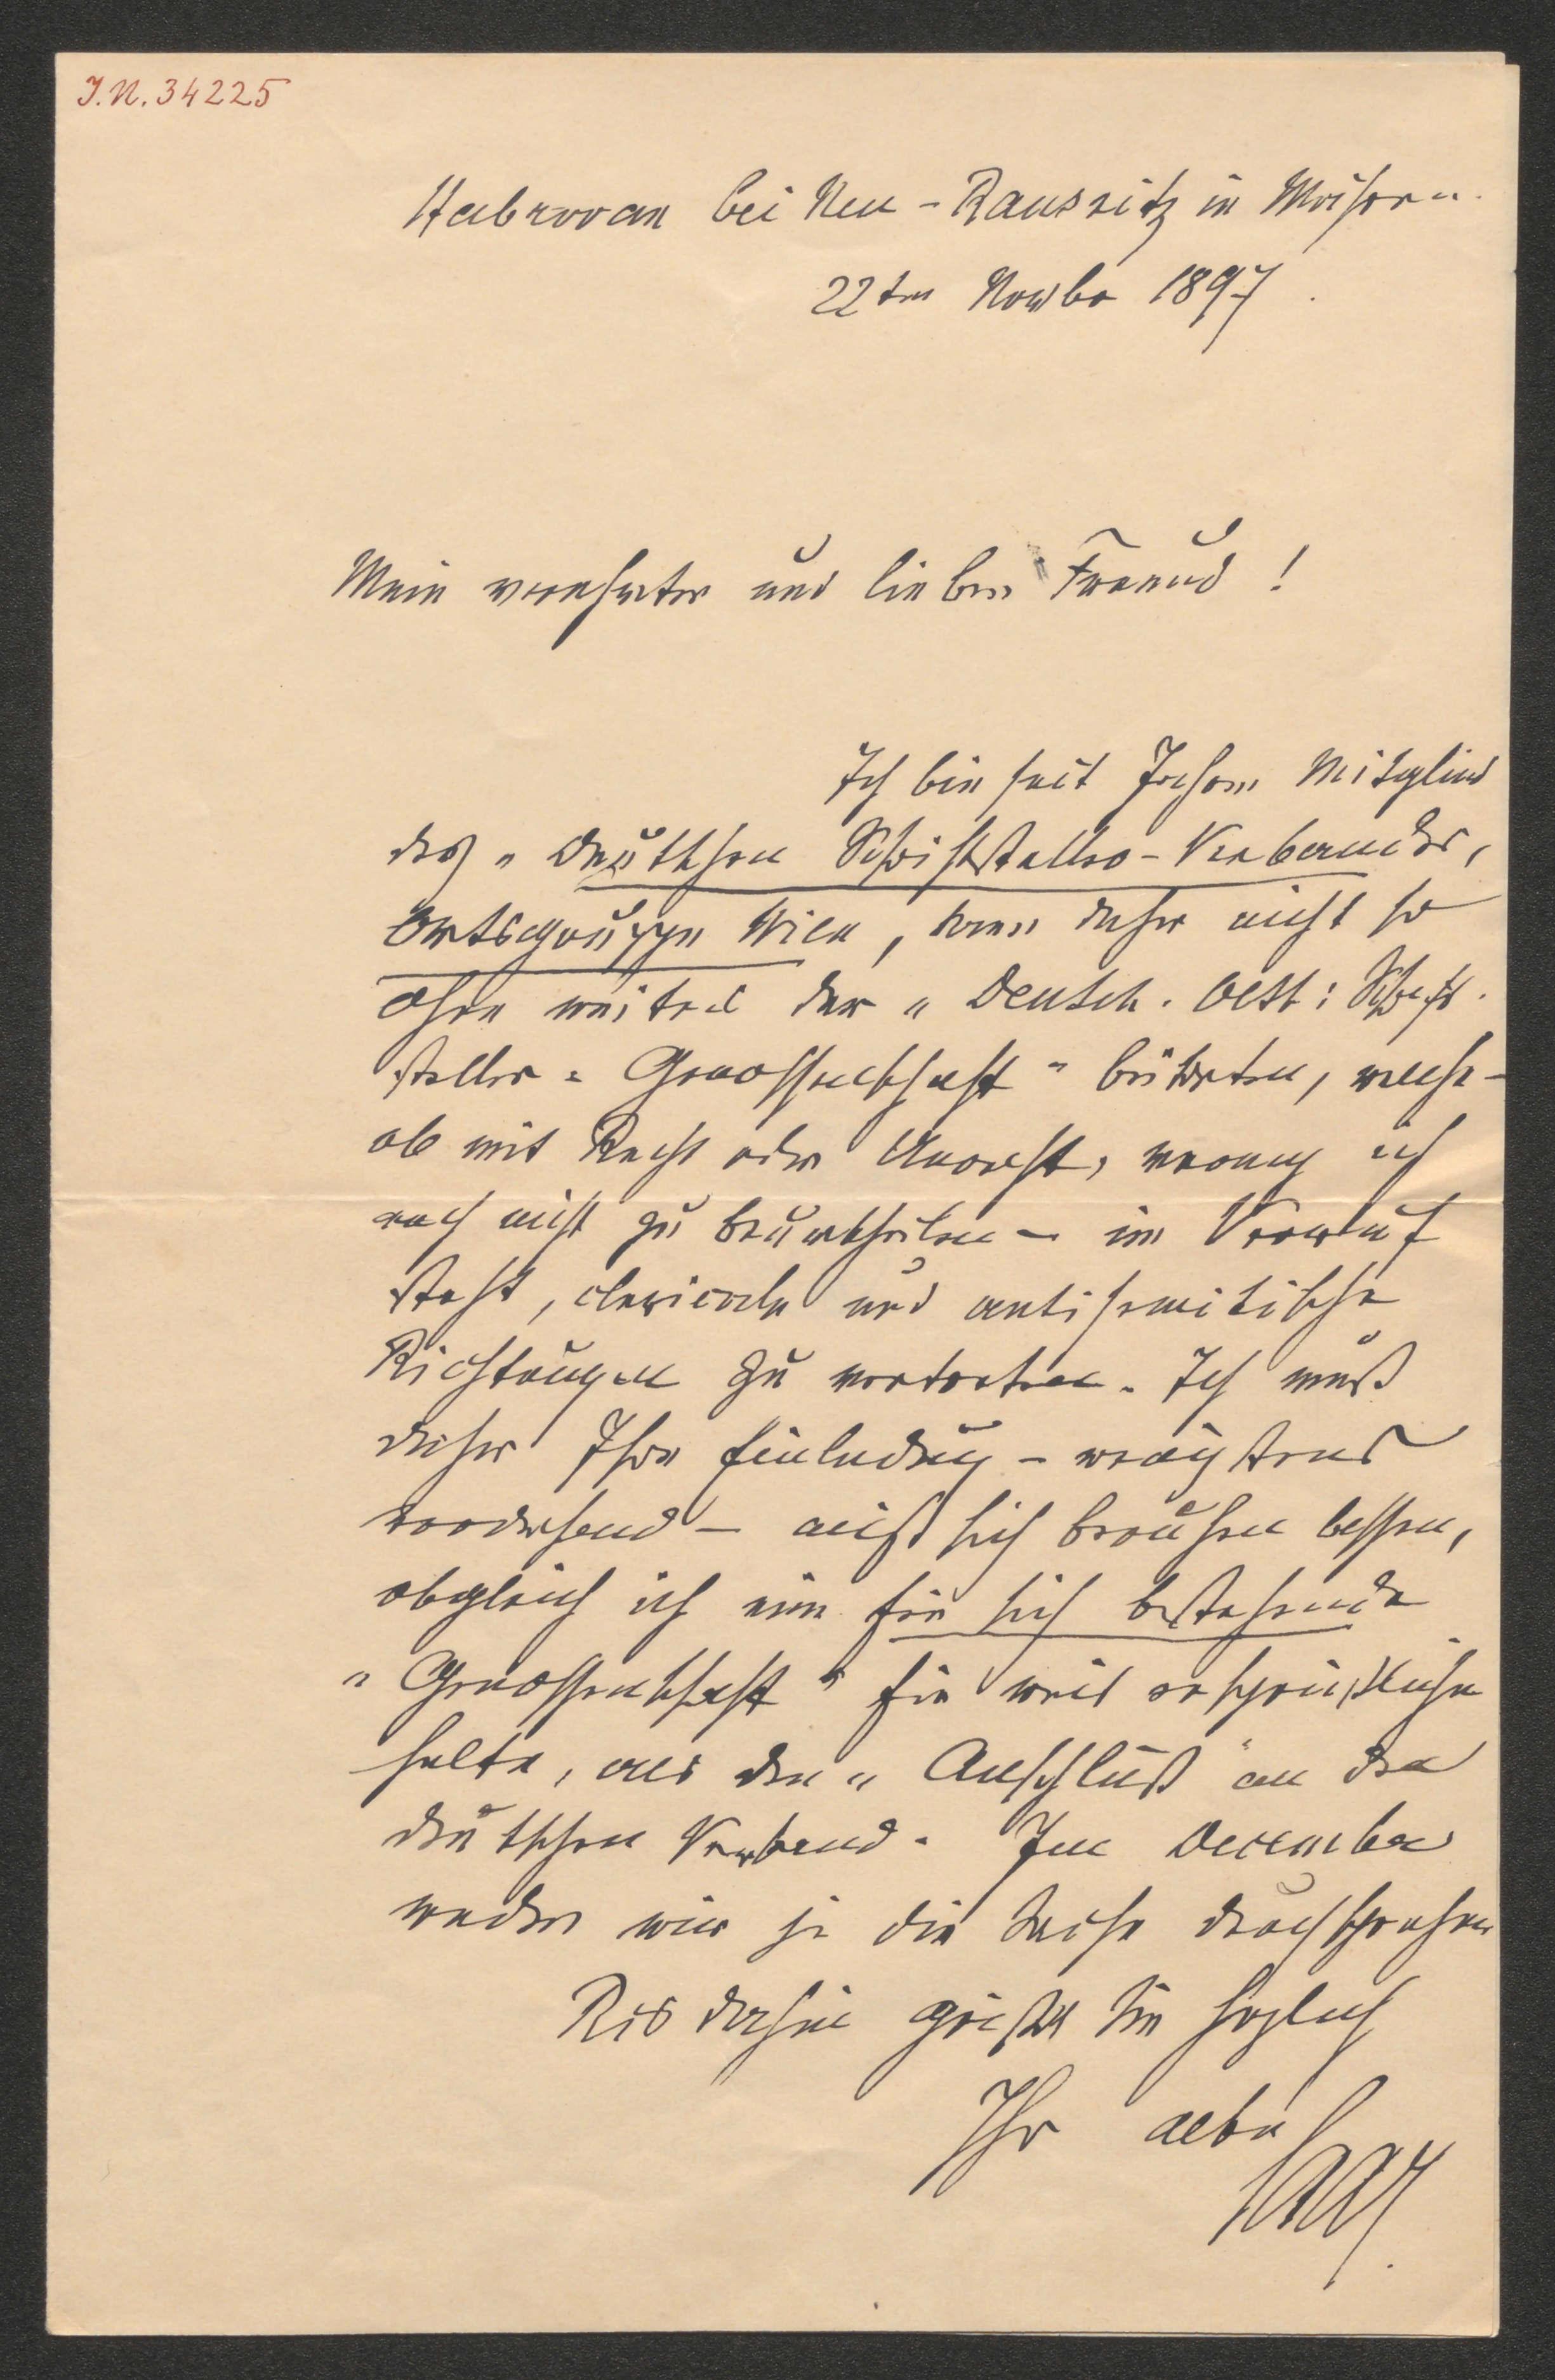 J.N. 34225
Habrovan bei Neu-Raussnitz in Mähren.
22ten Novbr 1897.
Mein verehrter und lieber Freund!
Ich bin seit Jahren Mitglied
des „Deutschen Schriftsteller-Verbandes,
Ortsgruppe Wien, kann daher nicht so
ohne weiters der „Deutsch. Oest: Schrift-
steller-Genossenschaft" beitreten, welche -
ob mit Recht oder Unrecht, vermag ich
noch nicht zu beurtheilen - im Verruf
steht, clericale und antisemitische
Richtungen zu vertreten. Ich muß
daher Ihre Einladung - wenigstens
vorderhand - auf sich beruhen lassen,
obgleich ich eine für sich bestehende
„Genossenschaft" für weit ersprießlicher
halte, als den „Anschluß" an den
deutschen Verband. Im December
werden wir ja die Sache durchsprechen
Bis dahin grüßt Sie herzlich
Ihr alter
Saar.